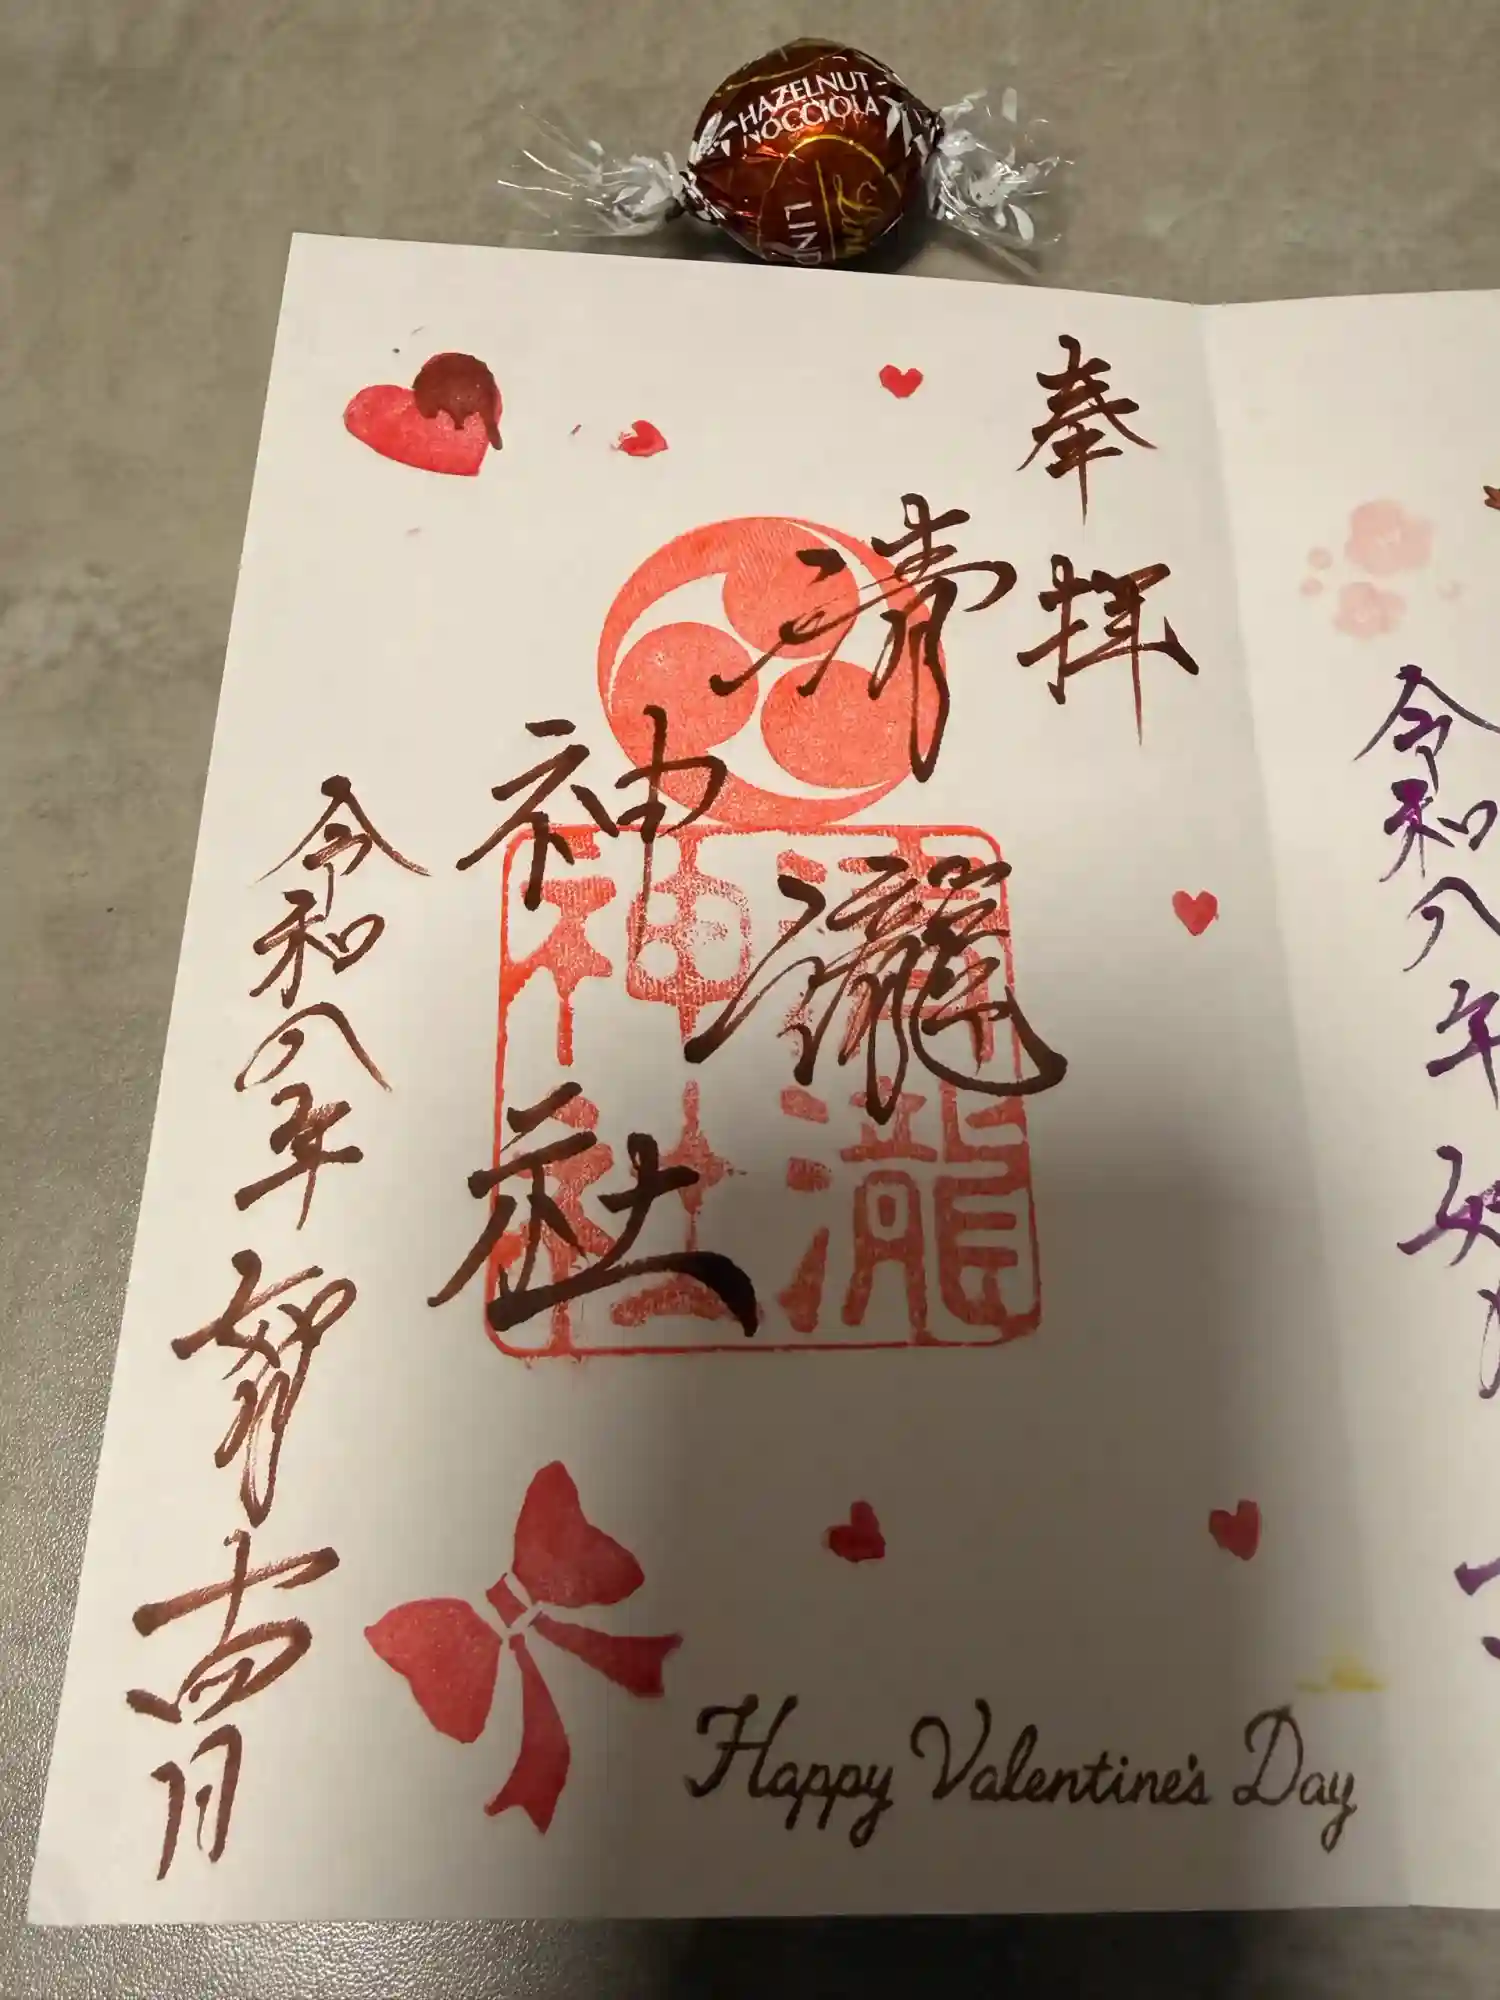 HAZELNUT
NOCCIOLA
LIND
奉拝
清瀧
神社
清瀧
神社
令和八年 如月 十四日
Happy Valentine's Day
令和八年